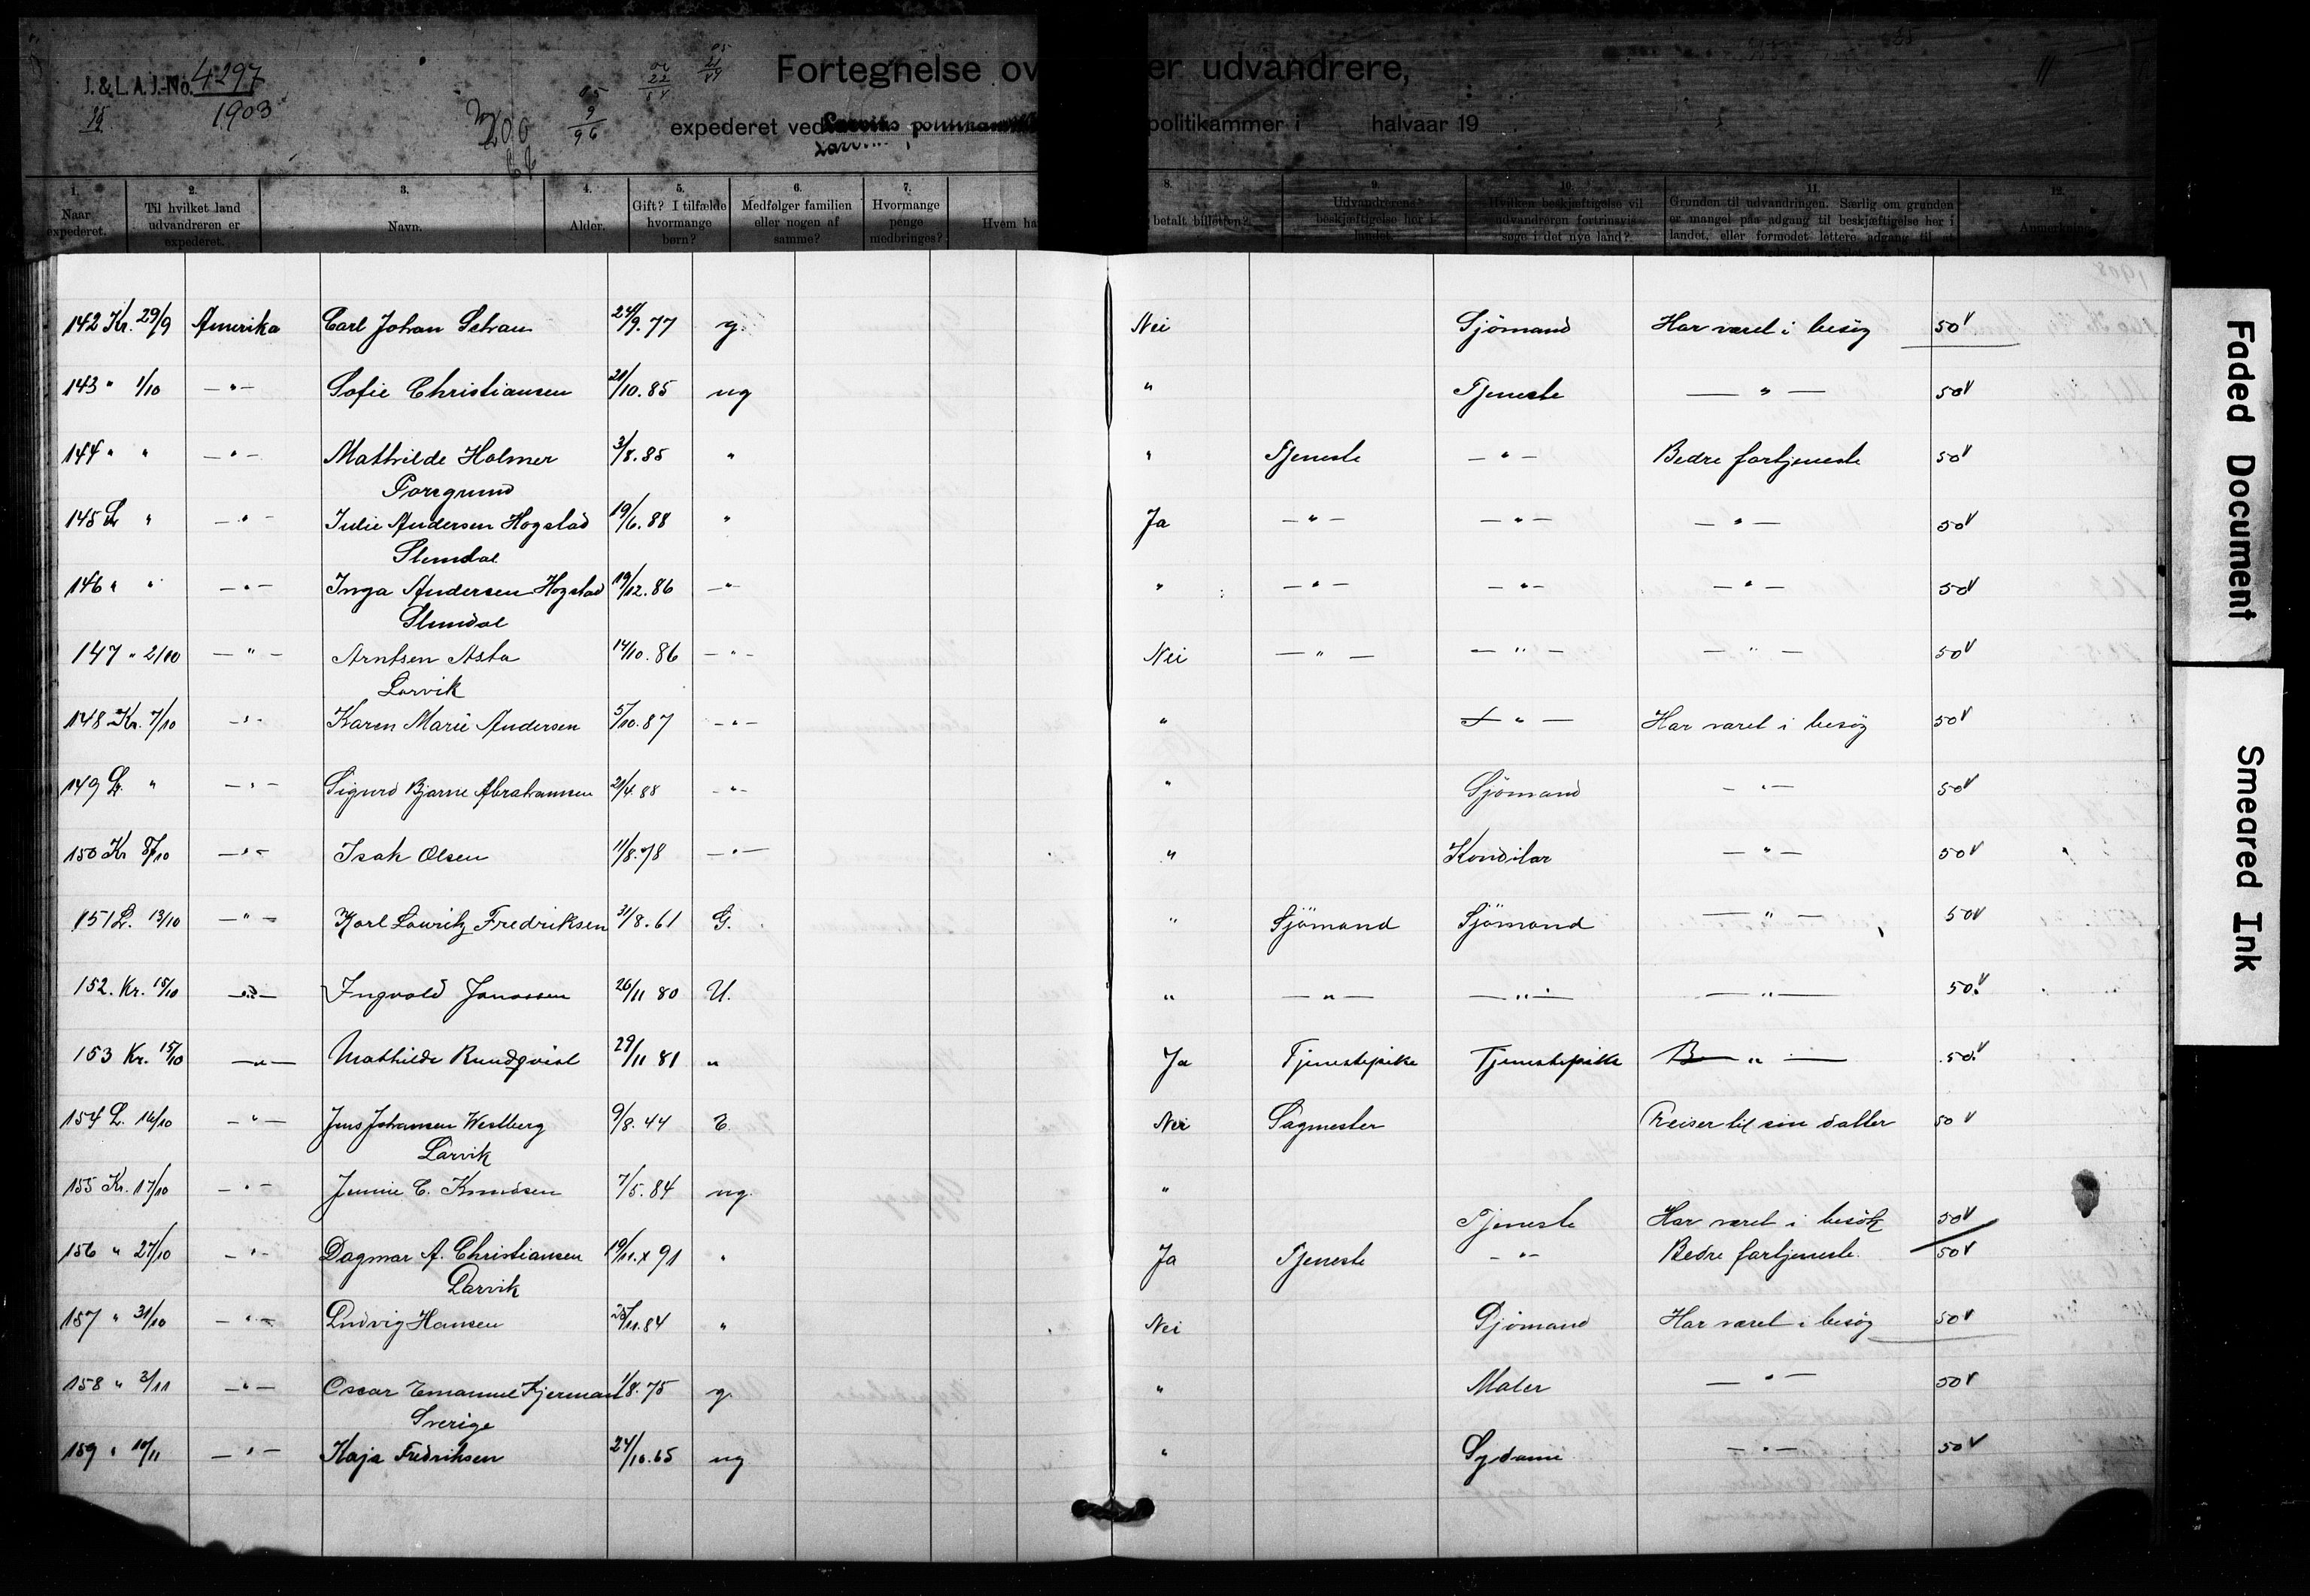 J. & L. A. J.-No. 4297
1903
200
05 9 96
Fortegnelse ov er udvandrere,
expederet ved politikammer i halvaar 19
1. Naar expederet.
2. Til hvilket land udvandreren er expederet.
3. Navn.
4. Alder.
5. Gift? I tilfælde hvormange børn?
6. Medfølger familien eller nogen af samme?
7. Hvormange penge medbringes?
Hvem ha
8. betalt billetten?
9. Udvandrerens beskjæftigelse her i landet.
10. Hvilken beskjæftigelse vil udvandreren fortrinsvis søge i det nye land?
11. Grunden til udvandringen. Særlig om grunden er mangel paa adgang til beskjæftigelse her i landet, eller formodet lettere adgang til at
12. Anmerkning.
142 Kr. 29/9 Amerika Carl Johan 24/9. 77 g. Nei Sjömand Har været i besög 50 v
143 " 1/10 — " — Sofie Christiansen 21/10. 85 ug " Tjeneste — " — 50 v
144 " " — " — Mathilde Holmer 3/8. 85 " " Tjeneste — " — Bedre fortjeneste 50 v
Porsgrund
145 L " — " — Julie Andersen Hogstad 19/6. 88 " Ja — " — — " — — " — 50 v
Slemdal
146 " " — " — Inga Andersen Hogstad 19/12. 86 — " — " — " — — " — — " — 50 v
Slemdal
147 " 2/10 — " — Arntsen Asta 14/10. 86 — " — Nei — " — — " — — " — 50 v
Larvik
148 Kr. 7/10 — " — Karen Marie Andersen 5/10. 87 — " — " — " — Har været i besög 50 v
149 L. " — " — Sigurd Bjarne Abrahamsen 21/4. 88 — " — " Sjömand — " — 50 v
150 Kr 8/10 — " — Isak Olsen 11/8. 78 — " — " Konditor — " — 50 v
151 L. 13/10 — " — Karl Lauritz Fredriksen 31/8. 61 G. " Sjömand Sjömand — " — 50 v
152. Kr. 15/10 — " — Ingvald Jonassen 26/11 80 U. " — " — — " — — " — 50 v
153 Kr. 15/10 — " — Mathilde Rundqvist 29/11 81 " Ja Tjenestepike Tjenestepike — " — 50 v
154 L. 16/10 — " — Jens Johansen Westberg 9/8. 44 E. Nei Sagmester Reiser til sin datter 50 v
Larvik
155 Kr. 17/10 — " — Jennie C. Knudsen 7/5. 84 ug. " Tjeneste Har været i besök 50 v
156 " 27/10 — " — Dagmar A. Christiansen 19/11. x 91 " Ja Tjeneste — " — Bedre fortjeneste. 50 v
Larvik
157 " 31/10 — " — Ludvig Hansen 25/11. 84 " Nei Sjömand Har været i besög 50 v
158 " 3/11 — " — Oscar Emanuel Kjerman 1/8. 75 g. " Maler — " — 50 v
Sverige
159 " 10/11 — " — Kaja Fredriksen 24/10. 65 ug " Sydame — " — 50 v
Faded Document
Smeared Ink